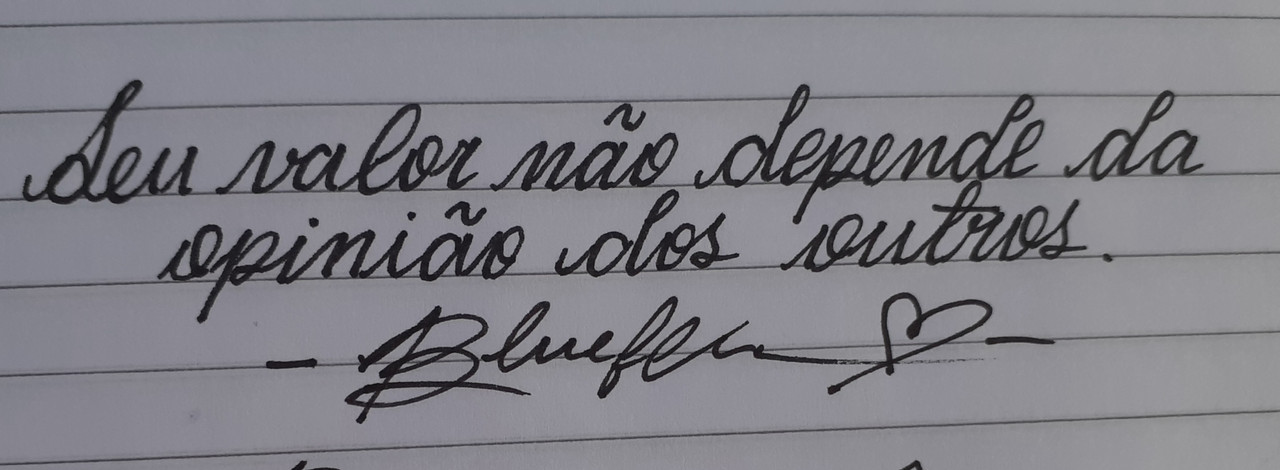 Seu valor não depende da
opinião dos outros.